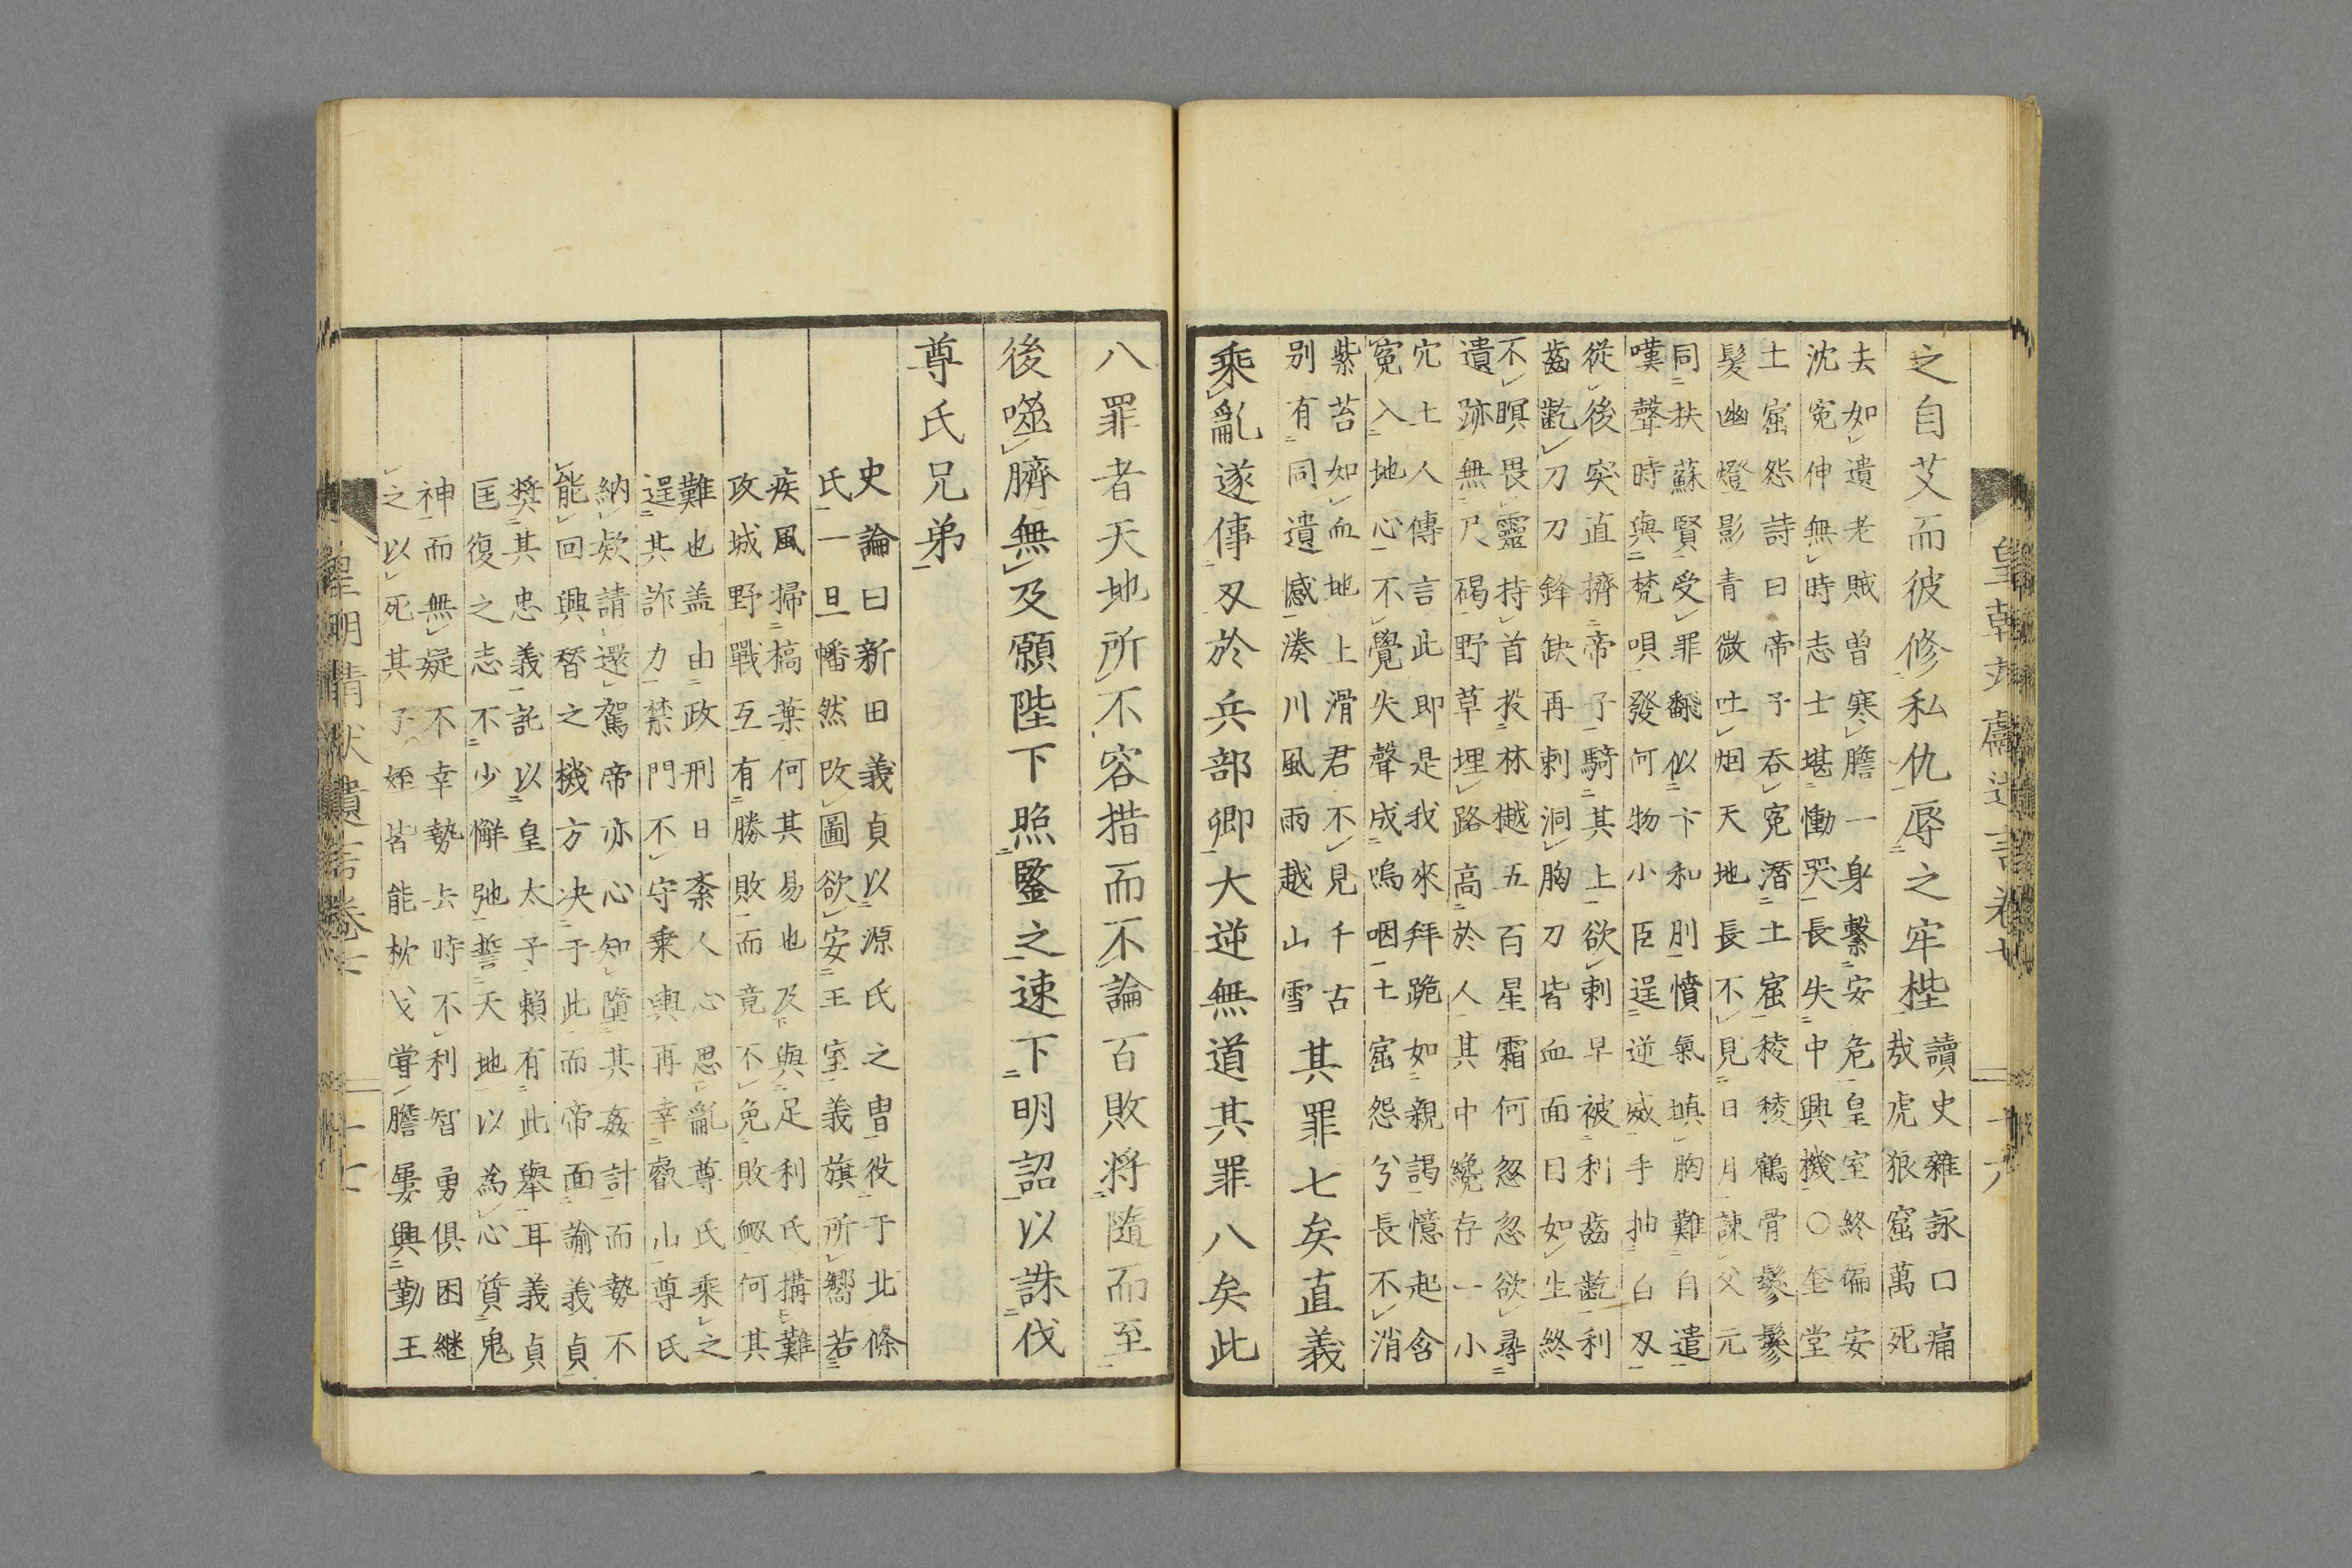 之自艾而彼修私仇辱之牢陛讀史雜詠口痛
哉虎狼窟萬死
去如遺老賊曽寒膽一身繫安危皇室終偏安
沈寃伸無時志士堪慟哭長失中興機〇
土窟怨詩曰帝子呑寃潛土窟稜稜鶴骨鬖鬖
髮幽燈影青微吐烟天地長不見日月諫父元
同扶蘇賢受罪翻似卞和刖憤氣塡胸難自遣
嘆聲時與梵唄發何物小臣逞逆威手抽白刄
從後突直擠帝子騎其上欲刺早被利齒齕利
齒齕刀刀鋒缺再刺洞胸刀皆血面目如生終
不瞑畏靈持首投林樾五百星霜何忽忽欲尋
遺跡無尺碣野草埋路高於人其中纔存一小
穴土人傳言此即是我來拜跪如親謁憶起含
寃入地心不覺失聲成嗚咽土窟怨兮長不消
紫苔如血地上滑君不見千古
别有同遺感湊川風雨越山雪
其罪七矣直義
乘亂遂倳刄於兵部卿大逆無道其罪八矣此
八罪者天地所不容措而不論百敗將隨而至
後噬臍無及願陛下照鑒之速下明詔以誅伐
尊氏兄弟
史論曰新田義貞以源氏之冑役于北條
氏一旦幡然改圖欲安王室義旗所嚮若
疾風掃槁葉何其易也及與足利氏搆難
攻城野戰互有勝敗而竟不免敗衂何其
難也盖由政刑日紊人心思亂尊氏乘之
逞其詐力禁門不守乘輿再幸叡山尊氏
納欵請還駕帝亦心知墮其姦計而勢不
能回興替之機方決于此而帝面諭義貞
奬其忠義託以皇太子賴有此舉耳義貞
匡復之志不少懈弛誓天地以為心質鬼
神而無疑不幸勢去時不利智勇俱困継
之以死其子姪皆能枕戈嘗膽屢興勤王